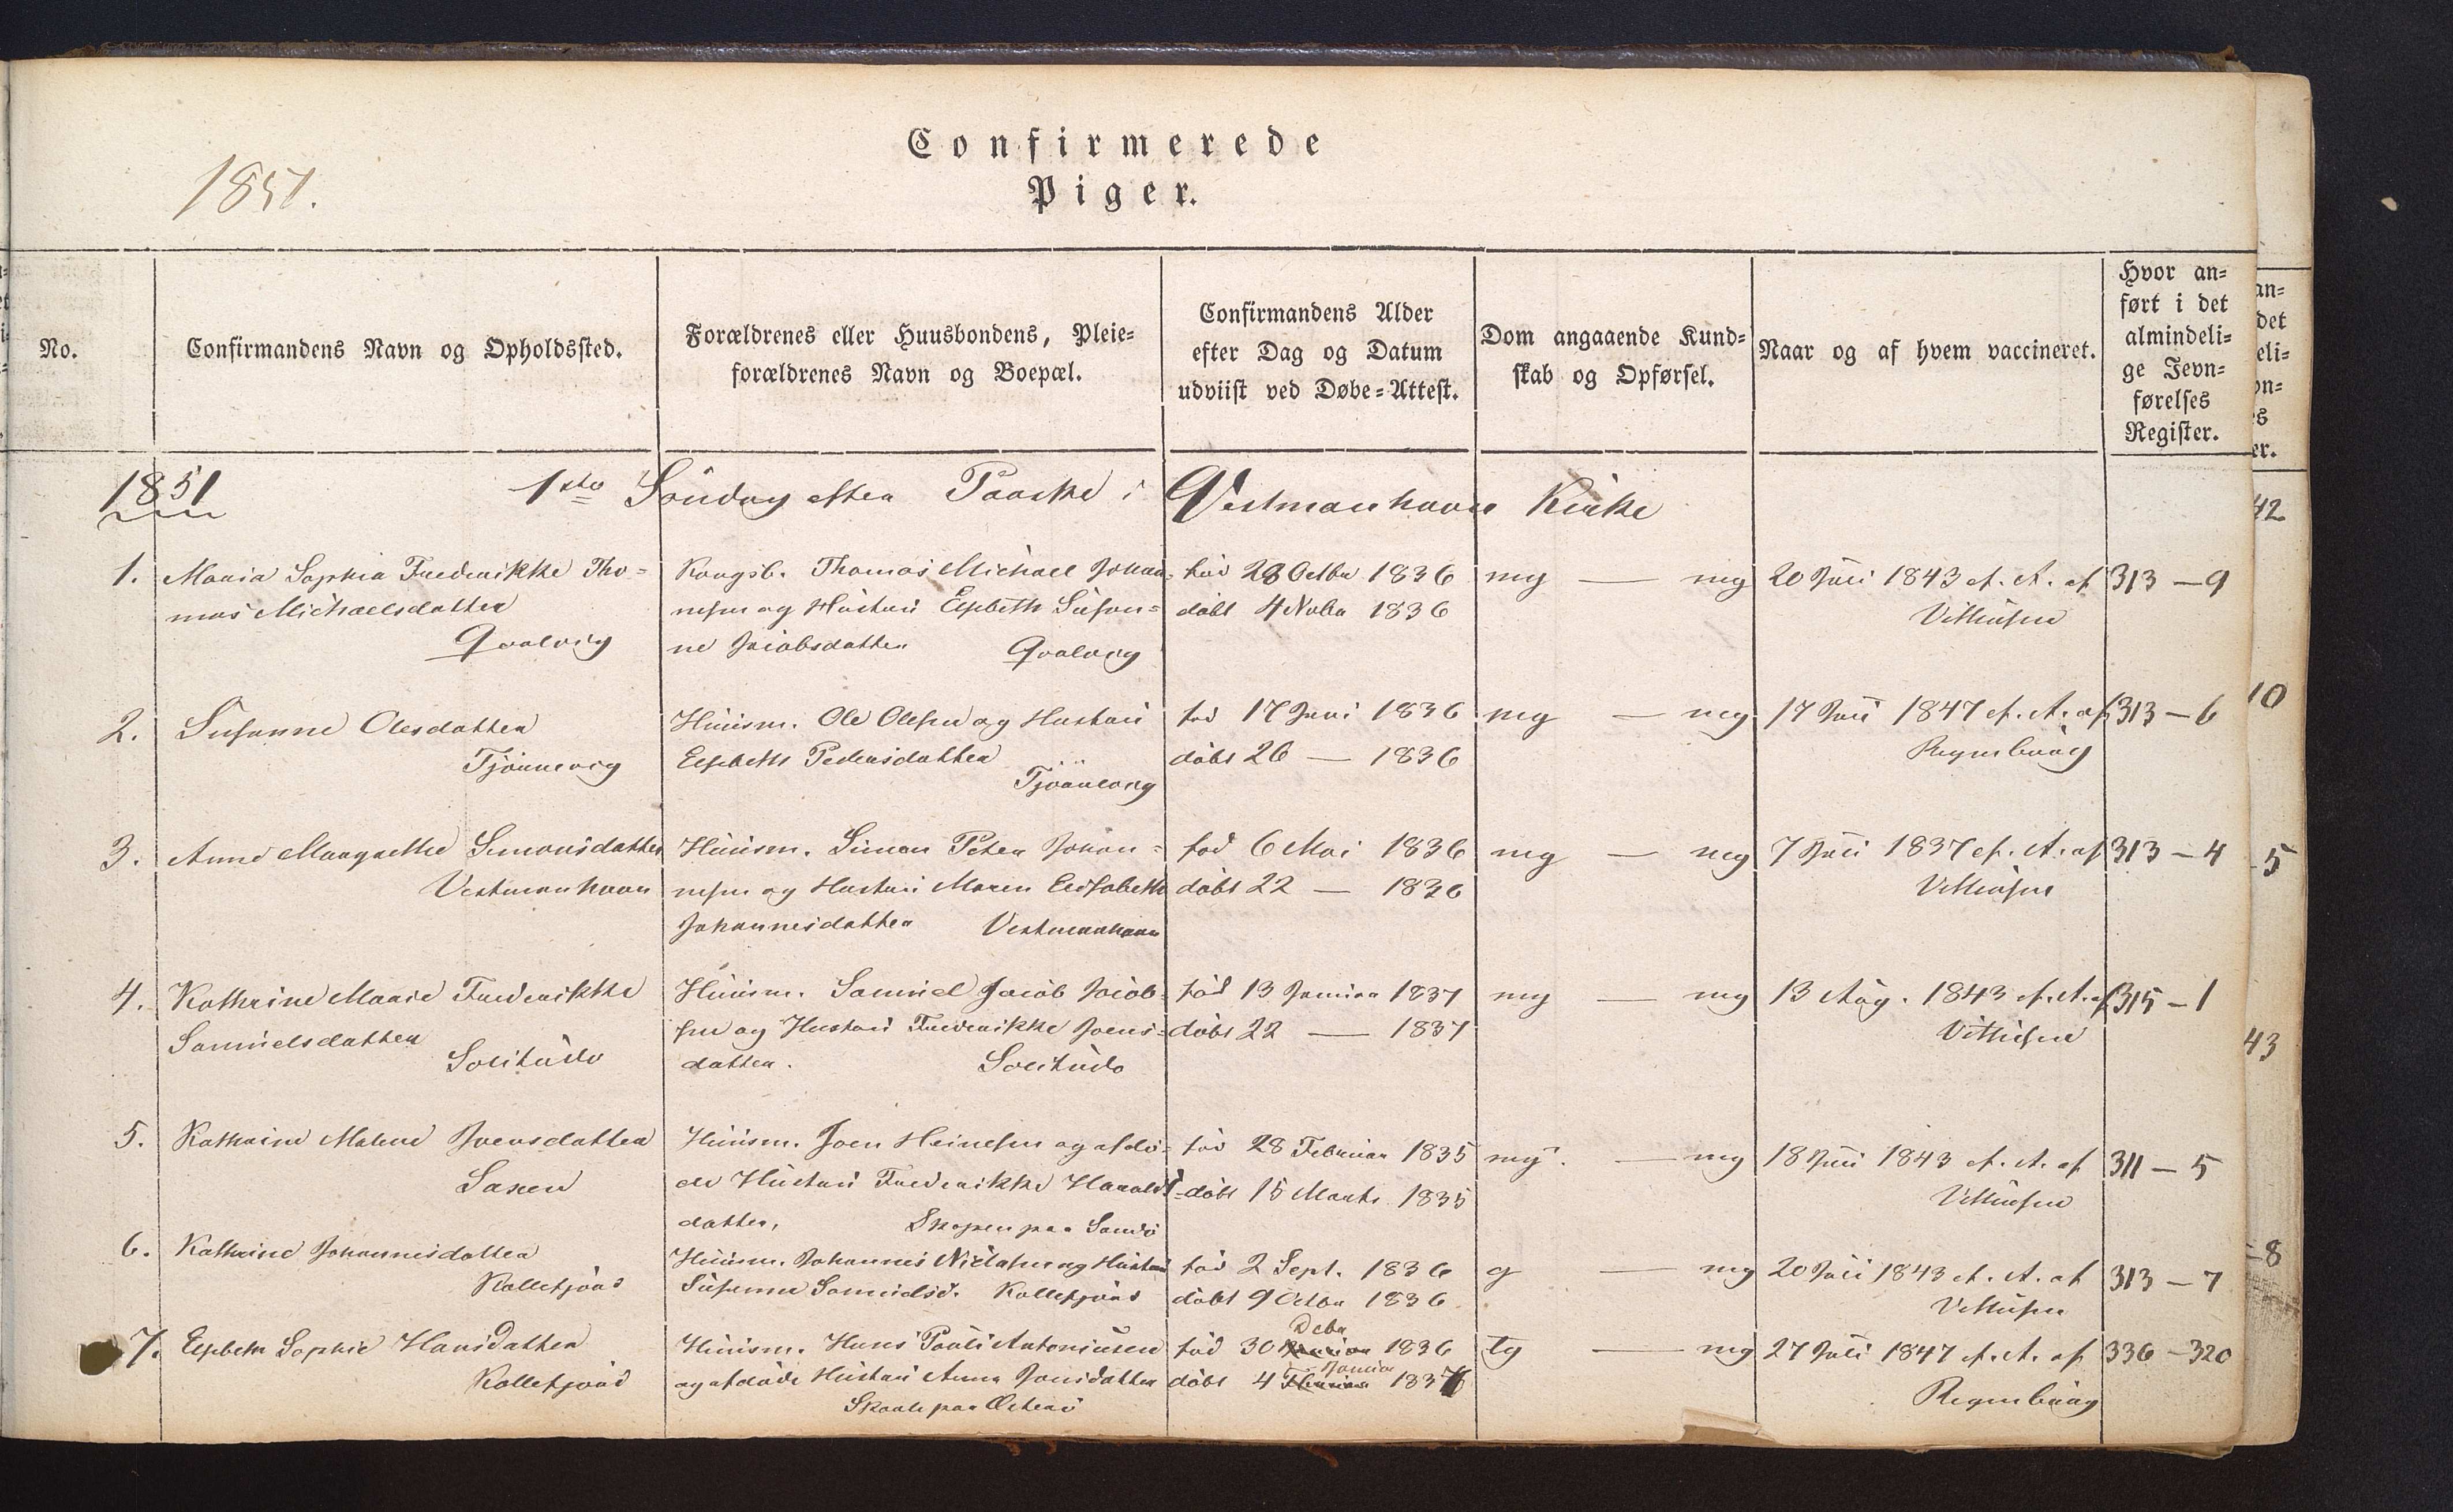 Confirmerede
1851.
Piger.
No.
Confirmandens Navn og Opholdssted.
Forældrenes eller Huusbondens, Pleie=
forældrenes Navn og Boepæl.
Confirmandens Alder
efter Dag og Datum
udviist ved Døbe=Attest.
Dom angaaende Kund=
skab og Opførsel.
Naar og af hvem vaccineret.
Hvor an=
ført i det
almindeli=
ge Jevn=
førelses
Register.
1851 1ste Søndag efter Paaske i Vestmanhavns Kirke
1.
Maria Sophia Frederikke Tho=
mas Michaelsdatter
Qvalvig
Kongsb. Thomas Michael Johan=
nesen og Hustru Elsebeth Susan=
ne Jacobsdatter Qvalvig
fød 28 Octbr 1836
døbt 4 Novbr 1836
mg — mg
20 Juli 1843 ef. A. af
313 — 9
2.
Susanne Olesdatter
Tjørnevig
Huusm. Ole Olesen og Hustru
Elsebeth Pedersdatter
Tjørnevig
fød 17 Juni 1836
døbt 26 — 1836
mg — mg
17 Juli 1847 ef. A. af
Regenburg
313 — 6
3.
Anne Margrethe Simonsdatter
Vestmanhavn
Huusm. Simon Peter Johan=
nesen og Hustru Maren Elisabeth
Johannesdatter Vestmanhavn
fød 6 Mai 1836
døbt 22 — 1836
mg — mg
7 Juli 1837 ef. A. af
313 — 4
4.
Kathrine Marie Frederikke
Samuelsdatter
Solitude
Huusm. Samuel Jacob Jacob=
sen og Hustru Frederikke Joens=
datter. Solitude
fød 13 Januar 1837
døbt 22 — 1837
mg — mg
13 Aug. 1843 ef. A. af
315 — 1
5.
Kathrine Malene Joensdatter
Saxen
Huusm. Joen Heinesen og afdø=
de Hustru Frederikke Harald=
datter, Skopen paa Sandø
fød 28 Februar 1835
døbt 15 Marts 1835
mg. — mg
18 Juli 1843 ef. A. af
311 — 5
6.
Kathrine Johannesdatter
Kollefjord
Huusm. Johannes Niclasen og Hustru
Susanne Samuelsd. Kollefjord
fød 2 Sept. 1836
døbt 9 Octbr 1836
g — mg
20 Juli 1843 ef. A. af
313 — 7
7.
Elsebeth Sophie Hansdatter
Kollefjord
Huusm. Hans Pauli Antoniusen
og afdøde Hustru Anna Joensdatter
Skaale paa Østerø
Decbr
fød 30 Januar 1836
Januar
døbt 4 1837
tg — mg
27 Juli 1847 ef. A. af
Regenburg
336 — 320
an=
det
eli=
vn=
es
er.
42
10
5
43
8